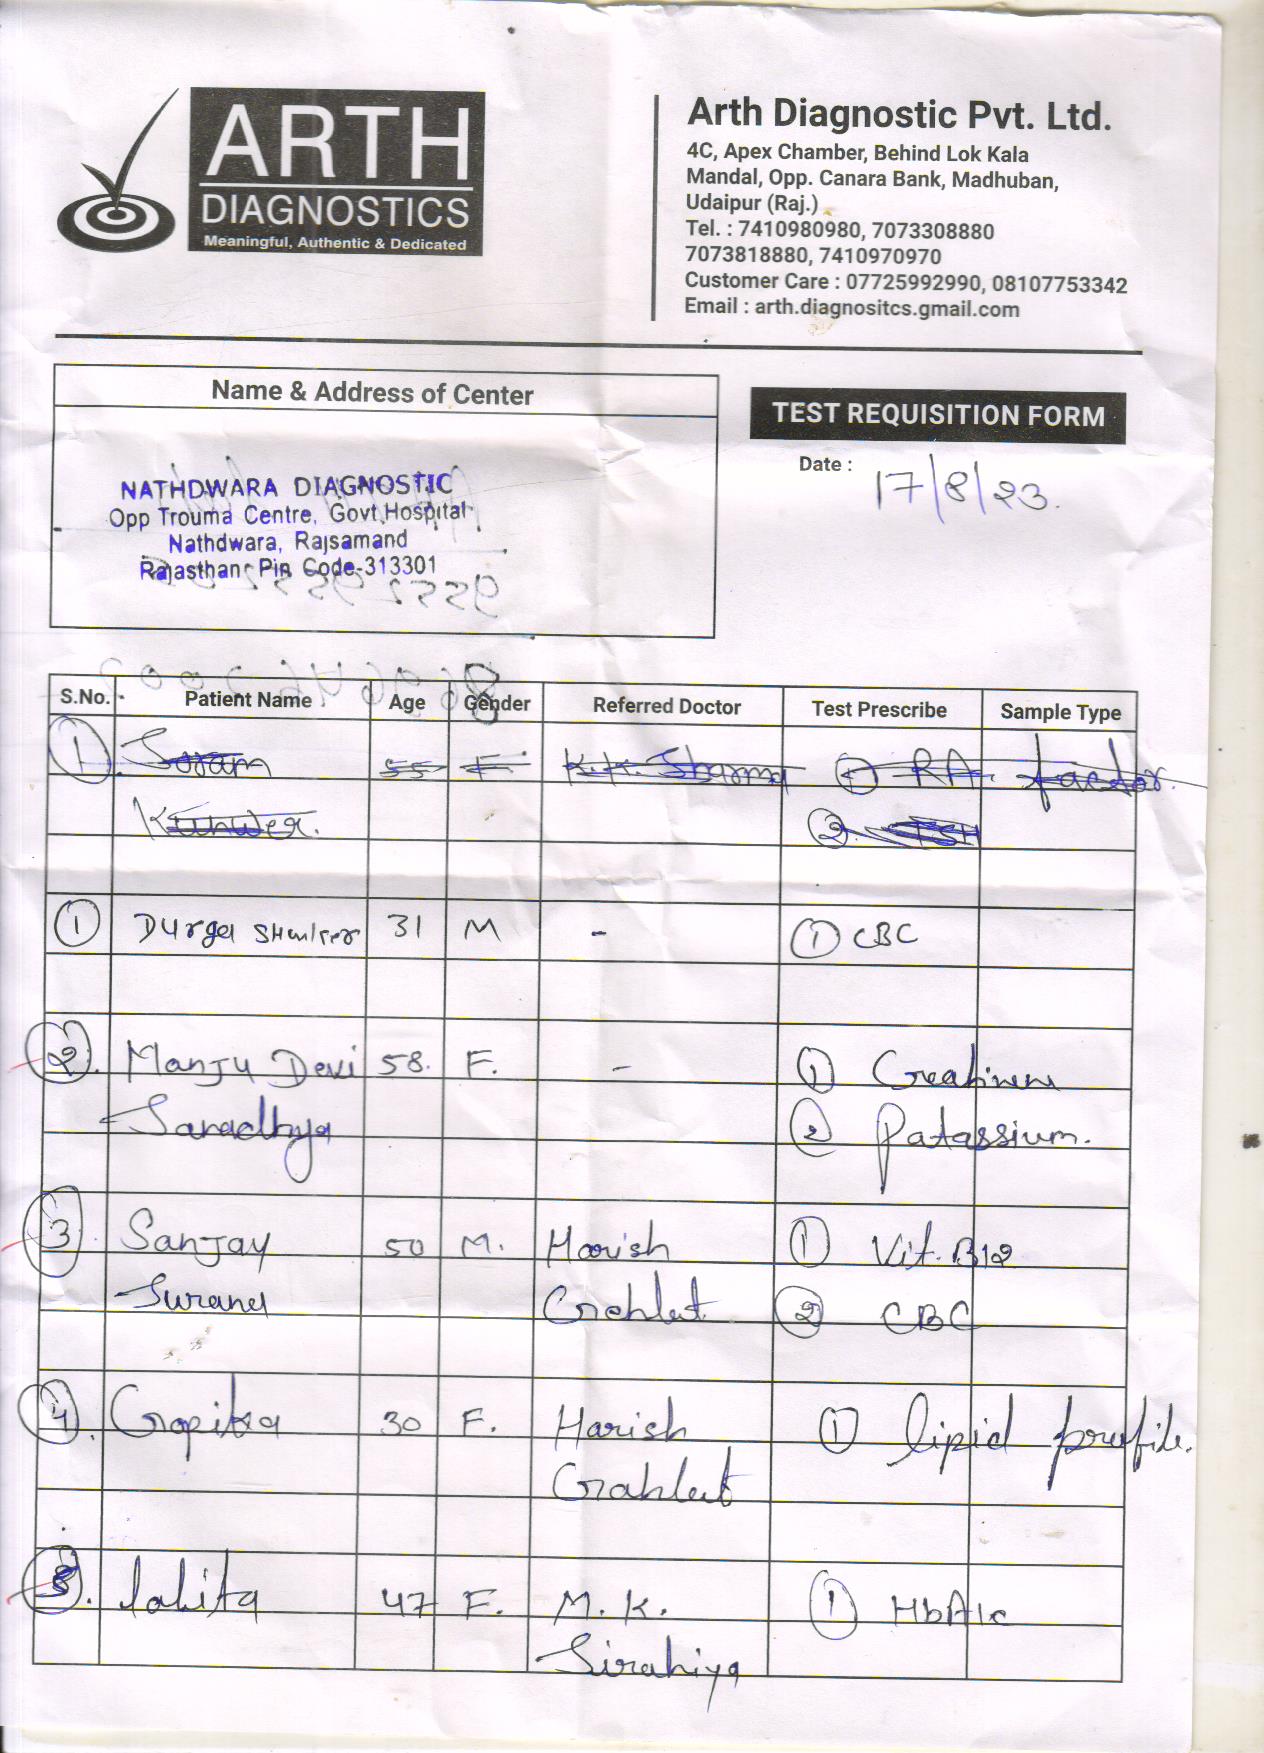 ARTH
DIAGNOSTICS
Meaningful, Authentic & Dedicated
Arth Diagnostic Pvt. Ltd.
4C, Apex Chamber, Behind Lok Kala
Mandal, Opp. Canara Bank, Madhuban,
Udaipur (Raj.)
Tel. : 7410980980, 7073308880
7073818880, 7410970970
Customer Care : 07725992990, 08107753342
Email : arth.diagnositcs.gmail.com
Name & Address of Center
NATHDWARA DIAGNOSTIC
Opp Trouma Centre, Govt.Hospital
Nathdwara, Rajsamand
Rajasthan Pin Code-313301
TEST REQUISITION FORM
Date : 17/8/23.
S.No. Patient Name Age Gender Referred Doctor Test Prescribe Sample Type
1. Soram 55 F. K.K. Sharma 1 RA. factor.
Kunwer. 2. TSH
1 Durga 31 M - 1 CBC
2. Manju Devi 58. F. - 1
Sanadhya 2 Patassium.
3 Sanjay 50 M. Harish 1 Vit. B12
Surana Gahlut 2 CBC
4. Gopika 30 F. Harish 1 lipid profile.
Gahlut
5. lalita 47 F. M. K. 1 HbA1c
Sirahiya